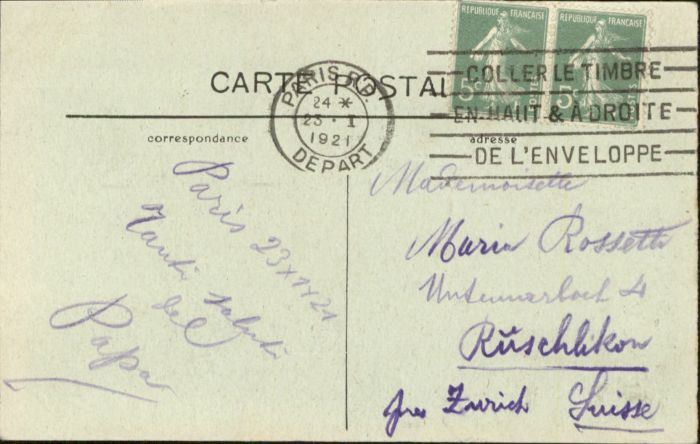 REPUBLIQUE FRANÇAISE
REPUBLIQUE FRANÇAISE
5c
5c
CARTE POSTAL
PARIS R.P.
24 *
23 · I
1921
DEPART
COLLER LE TIMBRE
EN HAUT & A DROITE
DE L'ENVELOPPE
correspondance
adresse
Paris 23 1 21
Tanti saluti
del
Papa
Mademoiselle
Maria Rossetti
4
Rüschlikon
Zurich Suisse